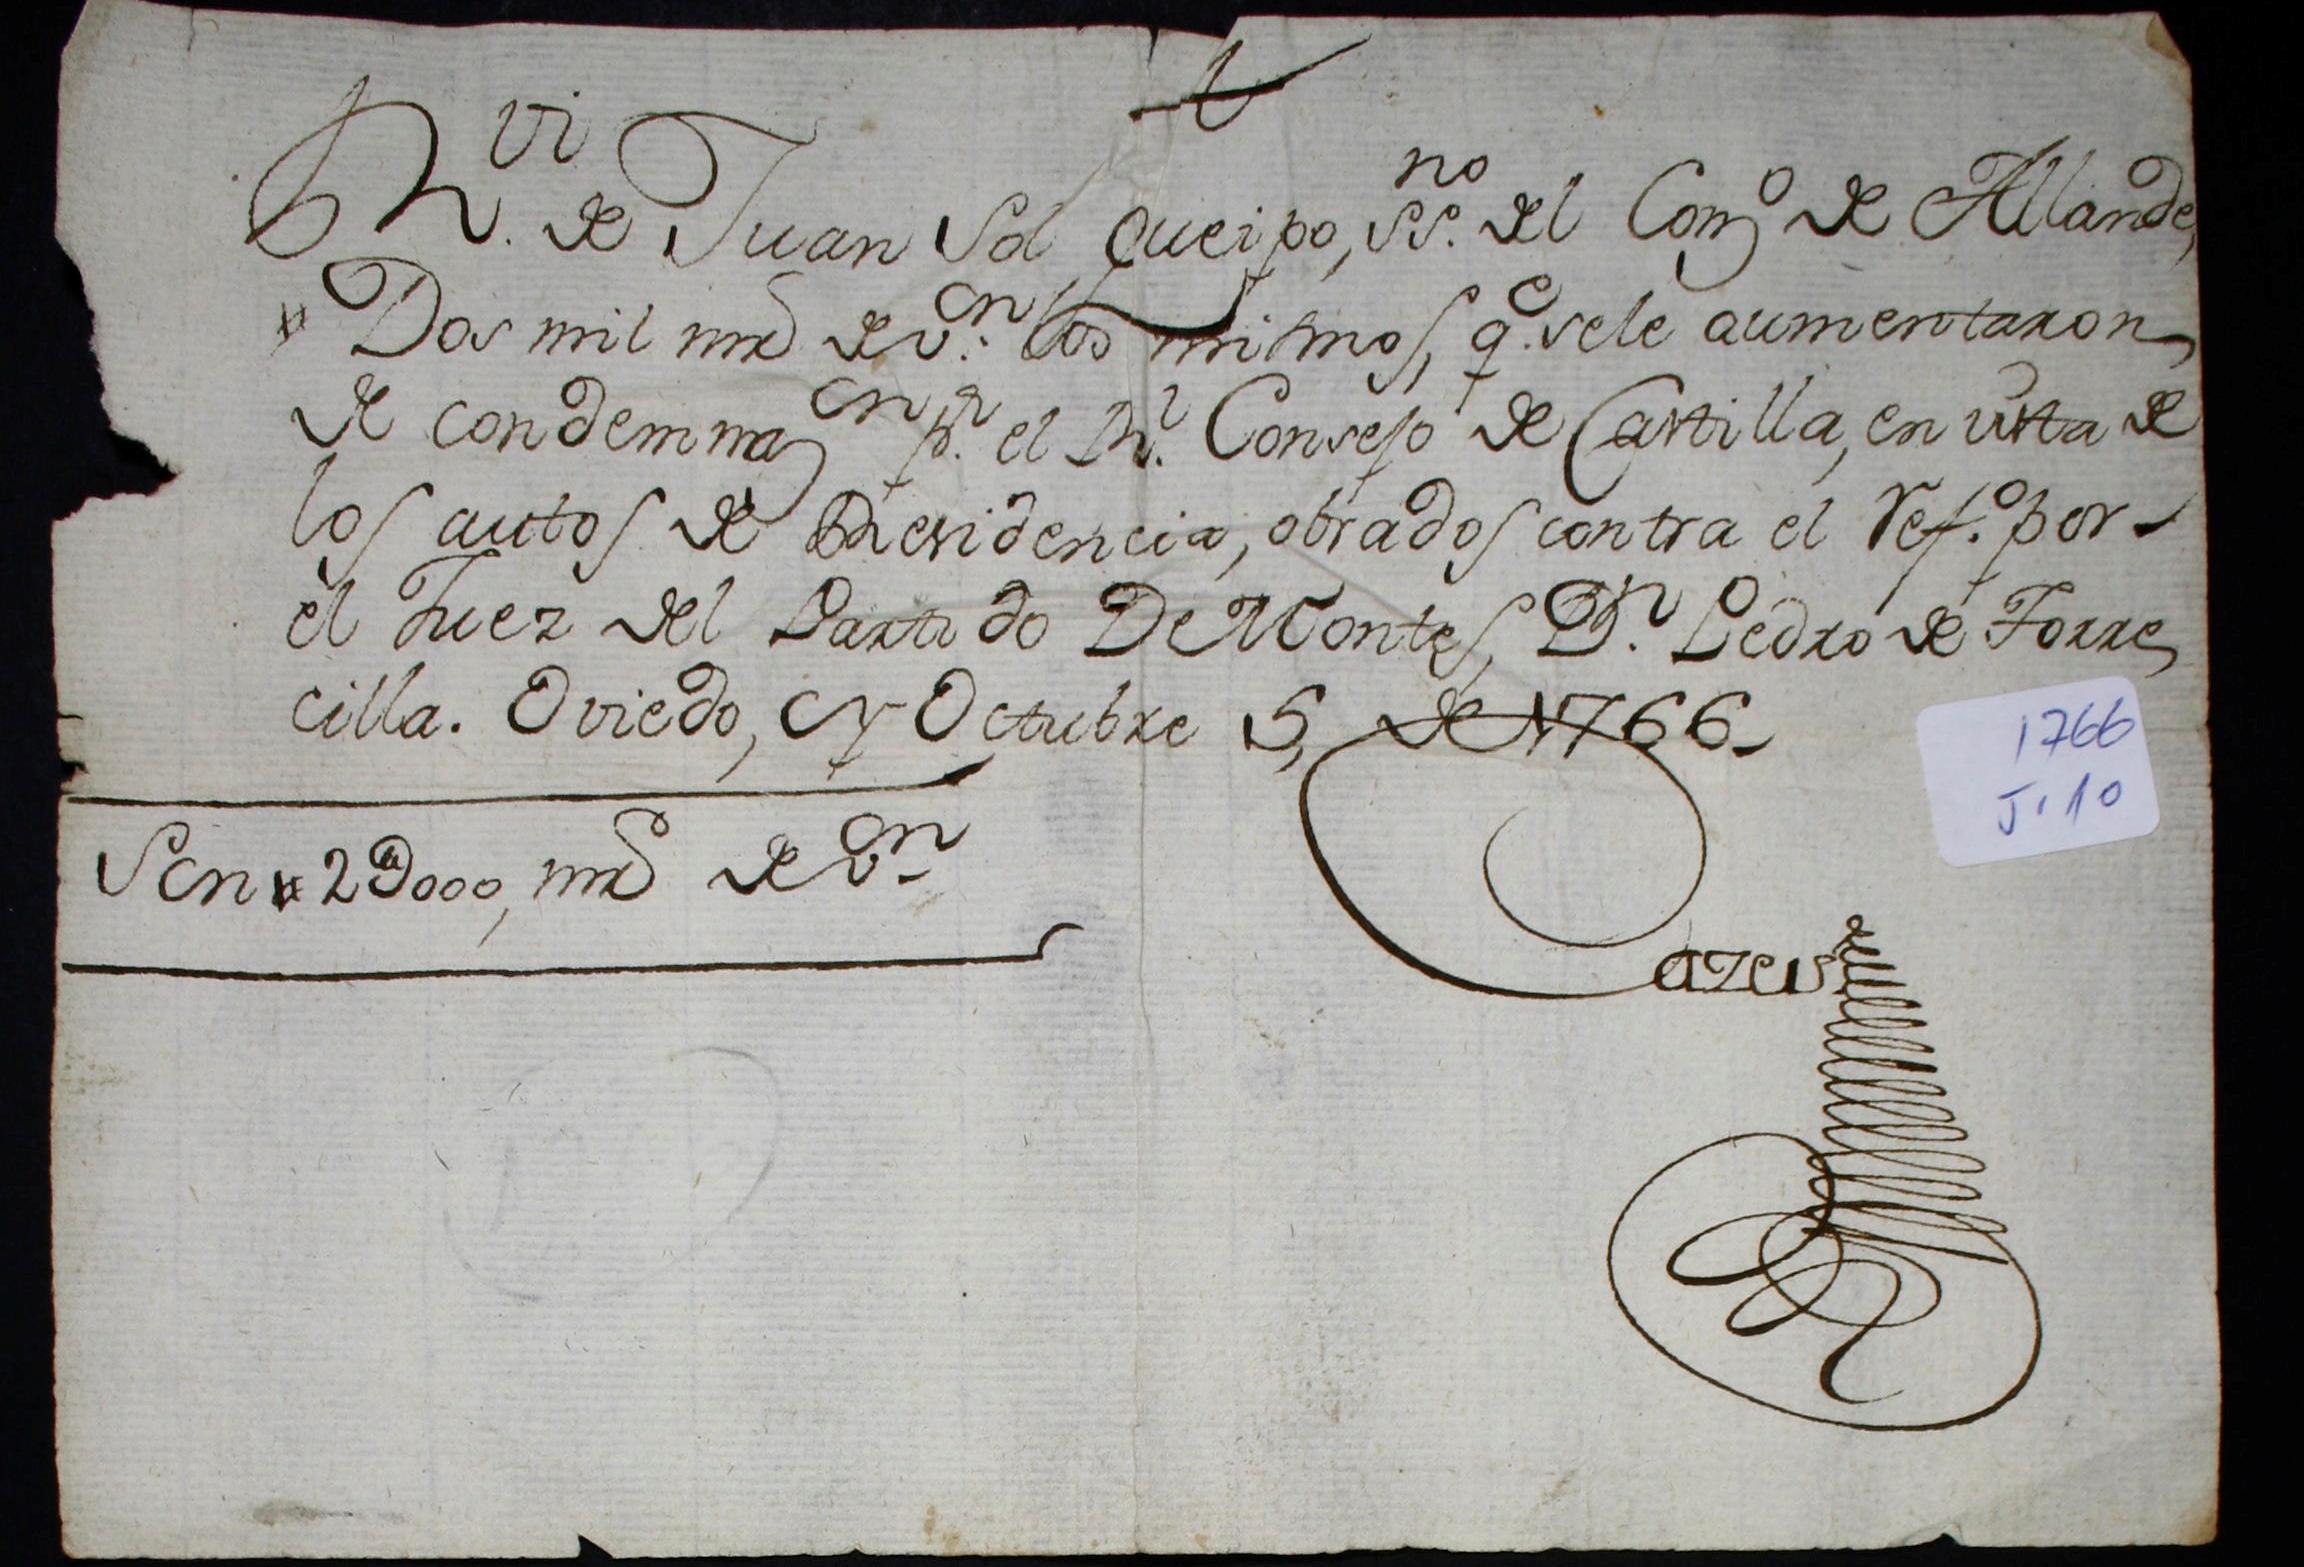 R.vi de Juan Sol Queipo, ss.no del Conz.o de Allande,
Dos mil mrs de v.on los mismos, q.e sele aumentaron
de condemnaz.on p.r el R.l Consejo de Castilla, en vista de
los autos de Residencia, obrados contra el ref.o por
el Juez del Partido De Montes, D.n Pedro de Torre
cilla. Oviedo, y Octubre 5, de 1766
Son 2D000, mrs de v.on
1766
J.10